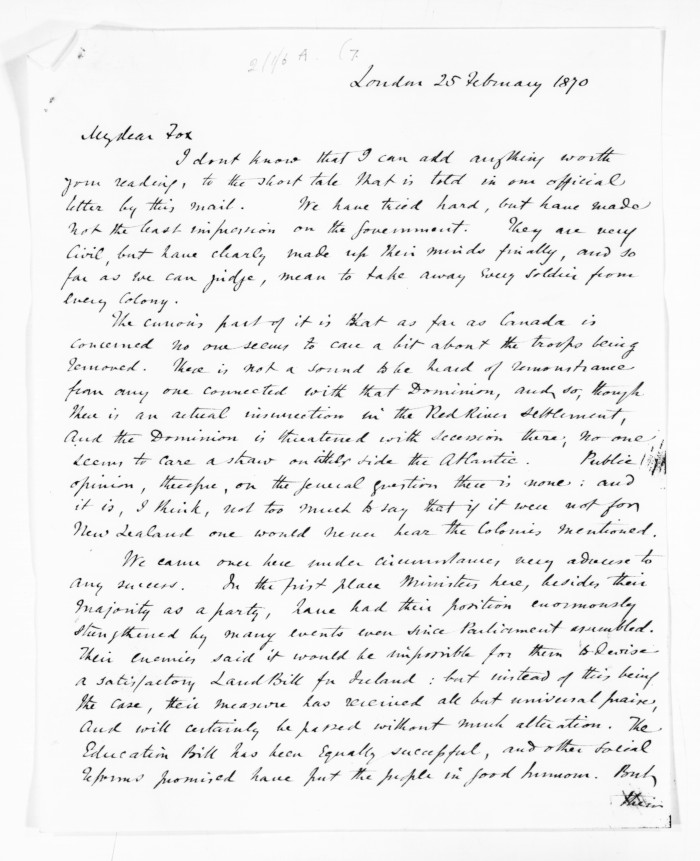 London 25 February 1870
My dear Fox
I dont know that I can add anything worth
your reading, to the short tale that is told in our official
letter by this mail. We have tried hard, but have made
not the least impression on the Government. They are very
Civil, but have clearly made up their minds finally, and so
far as we can judge, mean to take away every soldier from
every Colony.
The curious part of it is that as far as Canada is
concerned no one seems to care a bit about the troops being
removed. There is not a sound to be heard of remonstrance
from any one connected with that Dominion, and, so, though
there is an actual insurrection in the Red River Settlement,
And the Dominion is threatened with secession there; no one
seems to care a straw on either side the Atlantic. Public
opinion, therefore, on the general question there is none: and
it is, I think, not too much to say that if it were not for
New Zealand one would never hear the Colonies mentioned.
We came over here under circumstances very adverse to
any success. In the first place Ministers here, besides their
majority as a party, have had their position enormously
strengthened by many events even since Parliament assembled.
Their enemies said it would be impossible for them to devise
a satisfactory Land Bill for Ireland: but instead of this being
the case, their measure has received all but universal praise,
And will certainly be passed without much alteration. The
Education Bill has been Equally successful, and other social
reforms promised have put the people in good humour. But
their